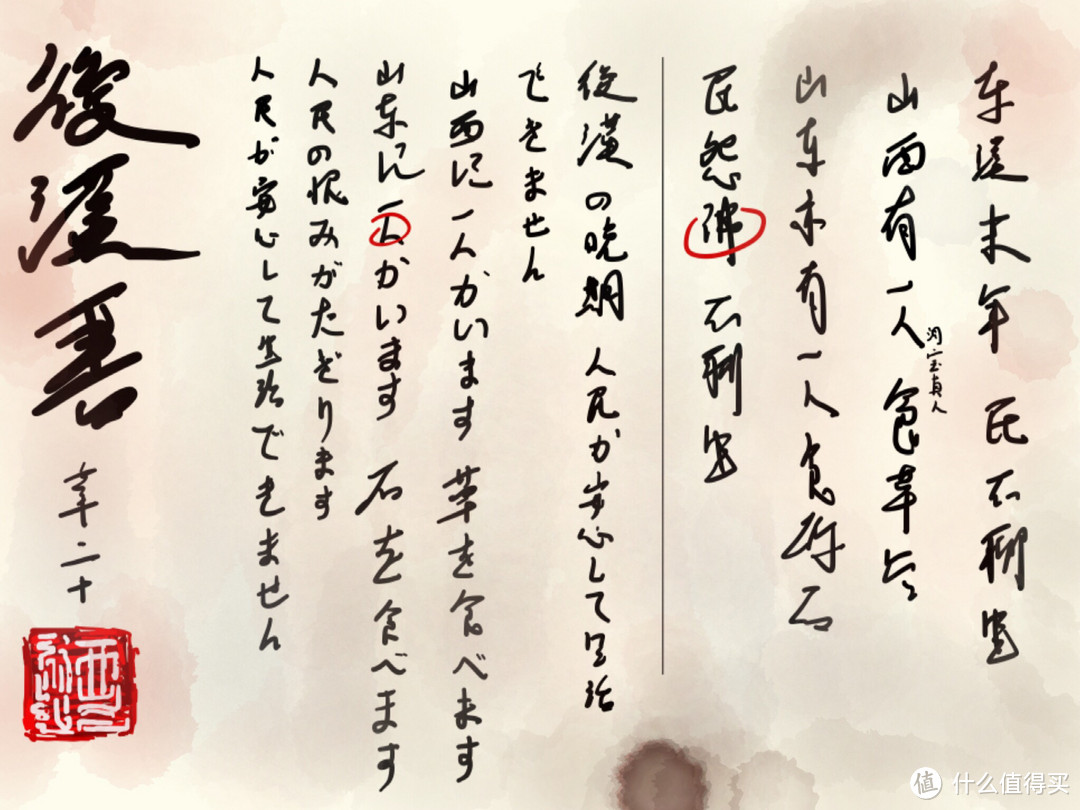 东漢末年 民不聊生
山西有一人 食草兮
真人
山东亦有一人食石
民怨沸 不聊生
後漢の晩期 人民が安心して生活
できません
山西に一人がいます 草を食べます
山东に一人がいます 石を食べます
人民の恨みがたぎります
人民が安心して生活できません
後漢書
二十
值 什么值得买